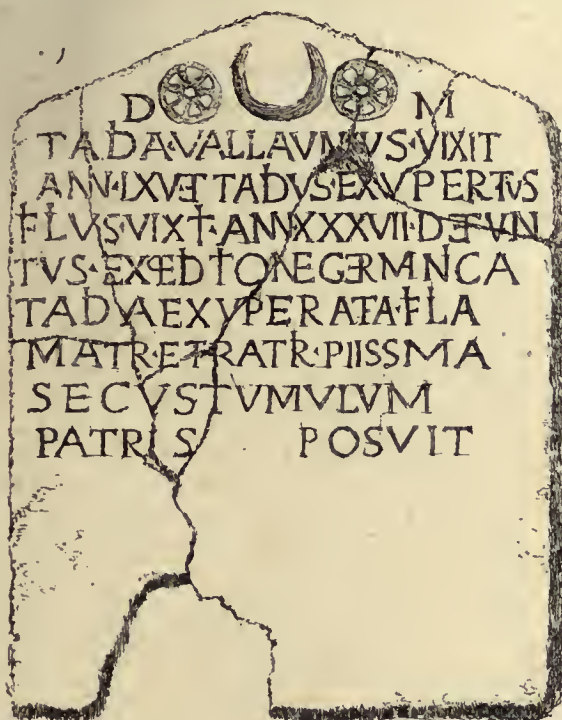 D M
TADA·VALLAVNIVS·VIXIT
ANN·LXVET TADVS·EXVPERTVS
FLVS·VIXT·ANNXXXVII·DEFVN
TVS·EXPEDTONEGERMNCA
TADVAEXVPERATA·FLA
MATRETRATR·PIISSMA
SECVSTVMVLVM
PATRIS POSVIT